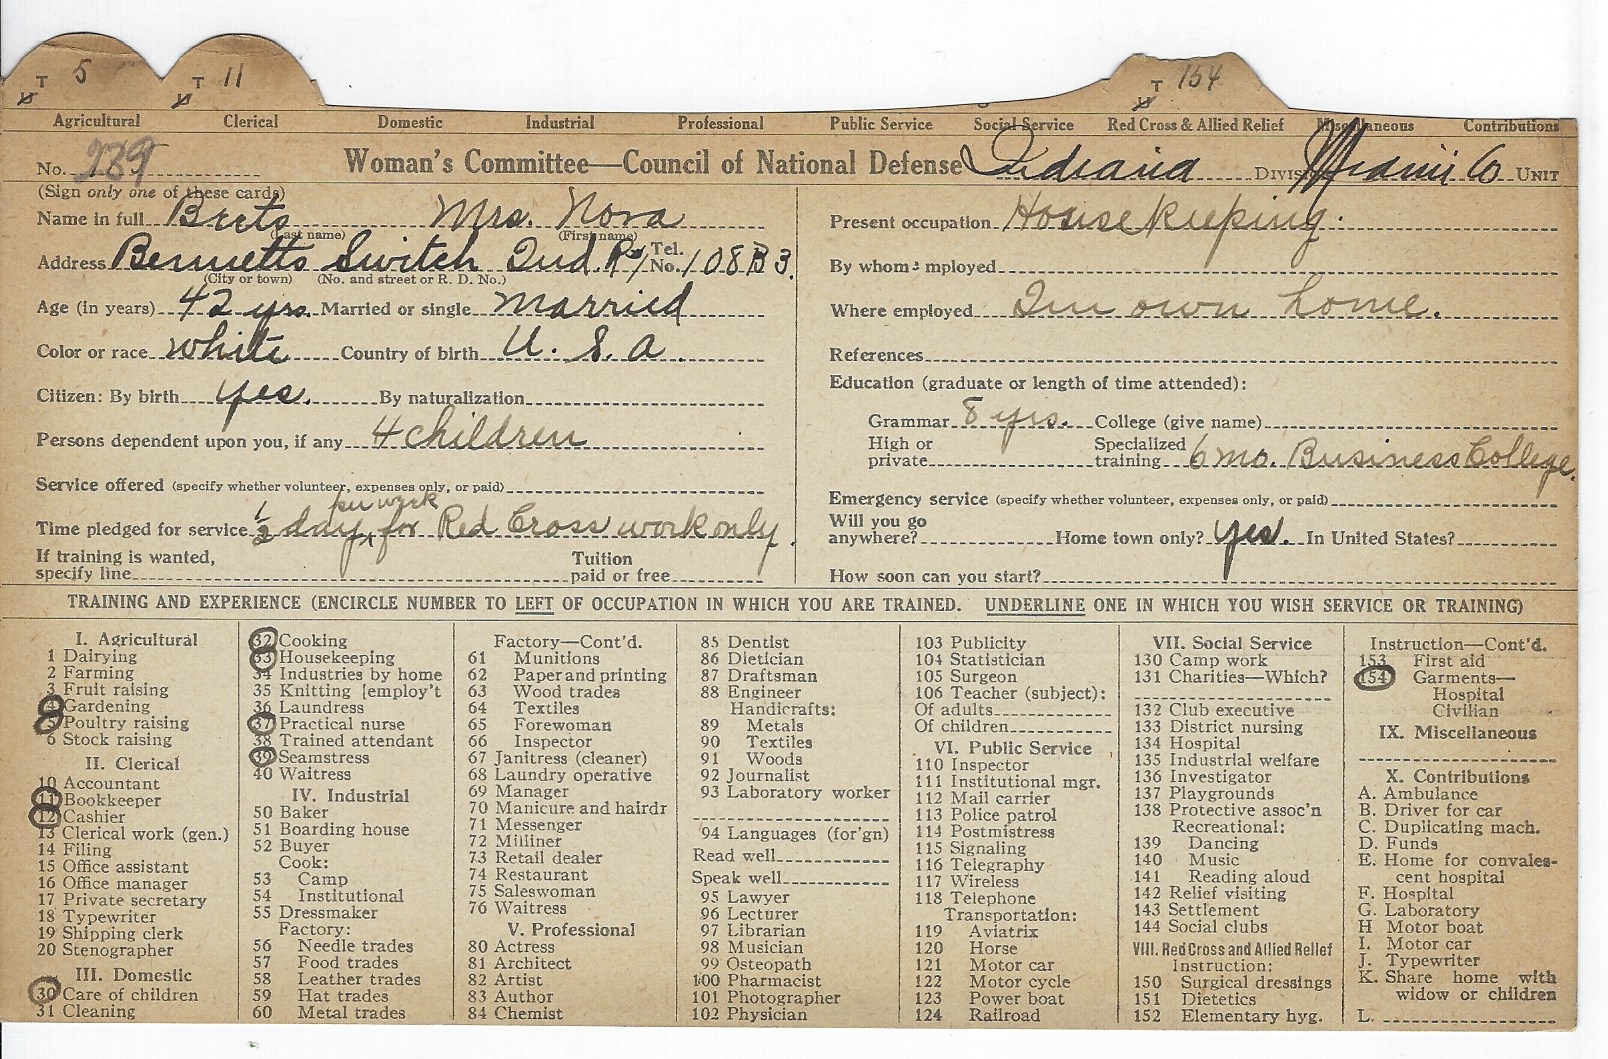 T 5 T 11 T 154
Agricultural Clerical Domestic Industrial Professional Public Service Social Service Red Cross & Allied Relief Miscellaneous Contributions
No. 239 Woman's Committee—Council of National Defense Indiana Division Miami Co Unit
(Sign only one of these cards)
Name in full Beets Mrs. Nova
(Last name) (First name)
Address Bennetts Switch Ind. R#1 Tel. No. 108 B 3.
(City or town) (No. and street or R. D. No.)
Age (in years) 42 yrs. Married or single Married
Color or race White Country of birth U. S. A.
Citizen: By birth yes. By naturalization
Persons dependent upon you, if any 4 children
Service offered (specify whether volunteer, expenses only, or paid)
per week
Time pledged for service 1/2 day ^ for Red Cross work only.
If training is wanted, specify line Tuition paid or free
Present occupation Housekeeping.
By whom employed
Where employed In own home.
References
Education (graduate or length of time attended):
Grammar 8 yrs. College (give name)
High or private Specialized training 6 mo. Business College.
Emergency service (specify whether volunteer, expenses only, or paid)
Will you go anywhere? Home town only? yes. In United States?
How soon can you start?
TRAINING AND EXPERIENCE (ENCIRCLE NUMBER TO LEFT OF OCCUPATION IN WHICH YOU ARE TRAINED. UNDERLINE ONE IN WHICH YOU WISH SERVICE OR TRAINING)
I. Agricultural
1 Dairying
2 Farming
3 Fruit raising
4 Gardening
5 Poultry raising
6 Stock raising
II. Clerical
10 Accountant
11 Bookkeeper
12 Cashier
13 Clerical work (gen.)
14 Filing
15 Office assistant
16 Office manager
17 Private secretary
18 Typewriter
19 Shipping clerk
20 Stenographer
III. Domestic
30 Care of children
31 Cleaning
32 Cooking
33 Housekeeping
34 Industries by home
35 Knitting [employ't
36 Laundress
37 Practical nurse
38 Trained attendant
39 Seamstress
40 Waitress
IV. Industrial
50 Baker
51 Boarding house
52 Buyer
Cook:
53 Camp
54 Institutional
55 Dressmaker
Factory:
56 Needle trades
57 Food trades
58 Leather trades
59 Hat trades
60 Metal trades
Factory—Cont'd.
61 Munitions
62 Paper and printing
63 Wood trades
64 Textiles
65 Forewoman
66 Inspector
67 Janitress (cleaner)
68 Laundry operative
69 Manager
70 Manicure and hairdr
71 Messenger
72 Milliner
73 Retail dealer
74 Restaurant
75 Saleswoman
76 Waitress
V. Professional
80 Actress
81 Architect
82 Artist
83 Author
84 Chemist
85 Dentist
86 Dietician
87 Draftsman
88 Engineer
Handicrafts:
89 Metals
90 Textiles
91 Woods
92 Journalist
93 Laboratory worker
94 Languages (for'gn)
Read well
Speak well
95 Lawyer
96 Lecturer
97 Librarian
98 Musician
99 Osteopath
100 Pharmacist
101 Photographer
102 Physician
103 Publicity
104 Statistician
105 Surgeon
106 Teacher (subject):
Of adults
Of children
VI. Public Service
110 Inspector
111 Institutional mgr.
112 Mail carrier
113 Police patrol
114 Postmistress
115 Signaling
116 Telegraphy
117 Wireless
118 Telephone
Transportation:
119 Aviatrix
120 Horse
121 Motor car
122 Motor cycle
123 Power boat
124 Railroad
VII. Social Service
130 Camp work
131 Charities—Which?
132 Club executive
133 District nursing
134 Hospital
135 Industrial welfare
136 Investigator
137 Playgrounds
138 Protective assoc'n
Recreational:
139 Dancing
140 Music
141 Reading aloud
142 Relief visiting
143 Settlement
144 Social clubs
VIII. Red Cross and Allied Relief
Instruction:
150 Surgical dressings
151 Dietetics
152 Elementary hyg.
Instruction—Cont'd.
153 First aid
154 Garments—
Hospital
Civilian
IX. Miscellaneous
X. Contributions
A. Ambulance
B. Driver for car
C. Duplicating mach.
D. Funds
E. Home for convales-
cent hospital
F. Hospital
G. Laboratory
H Motor boat
I. Motor car
J. Typewriter
K. Share home with
widow or children
L.